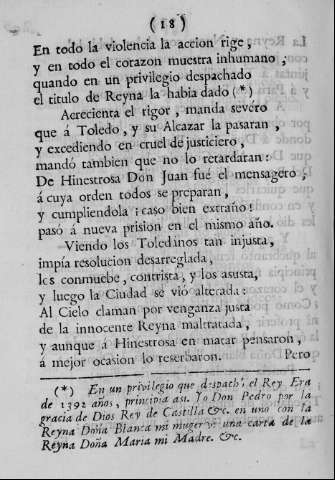 (18)
En todo la violencia la accion rige,
y en todo el corazon muestra inhumano,
quando en un privilegio despachado
el titulo de Reyna la habia dado (*)
Acrecienta el rigor, manda severo
que á Toledo, y su Alcazar la pasaran,
y excediendo en cruel de justiciero,
mandó tambien que no lo retardaran:
De Hinestrosa Don Juan fué el mensagero,
á cuya orden todos se preparan,
y cumpliendola ¡caso bien extraño!
pasó á nueva prision en el mismo año.
Viendo los Toledanos tan injusta,
impía resolucion desarreglada,
les conmuebe, contrista, y los asusta,
y luego la Ciudad se vió alterada:
Al Cielo claman por venganza justa
de la innocente Reyna maltratada,
y aunque á Hinestrosa en matar pensaron,
á mejor ocasion lo reservaron. Pero
(*) En un privilegio que despachó el Rey Era
de 1392 años, principia asi. Yo Don Pedro por la
gracia de Dios Rey de Castilla &c. en uno con la
Reyna Doña Blanca mi muger y una carta de la
Reyna Doña Maria mi Madre. &c.